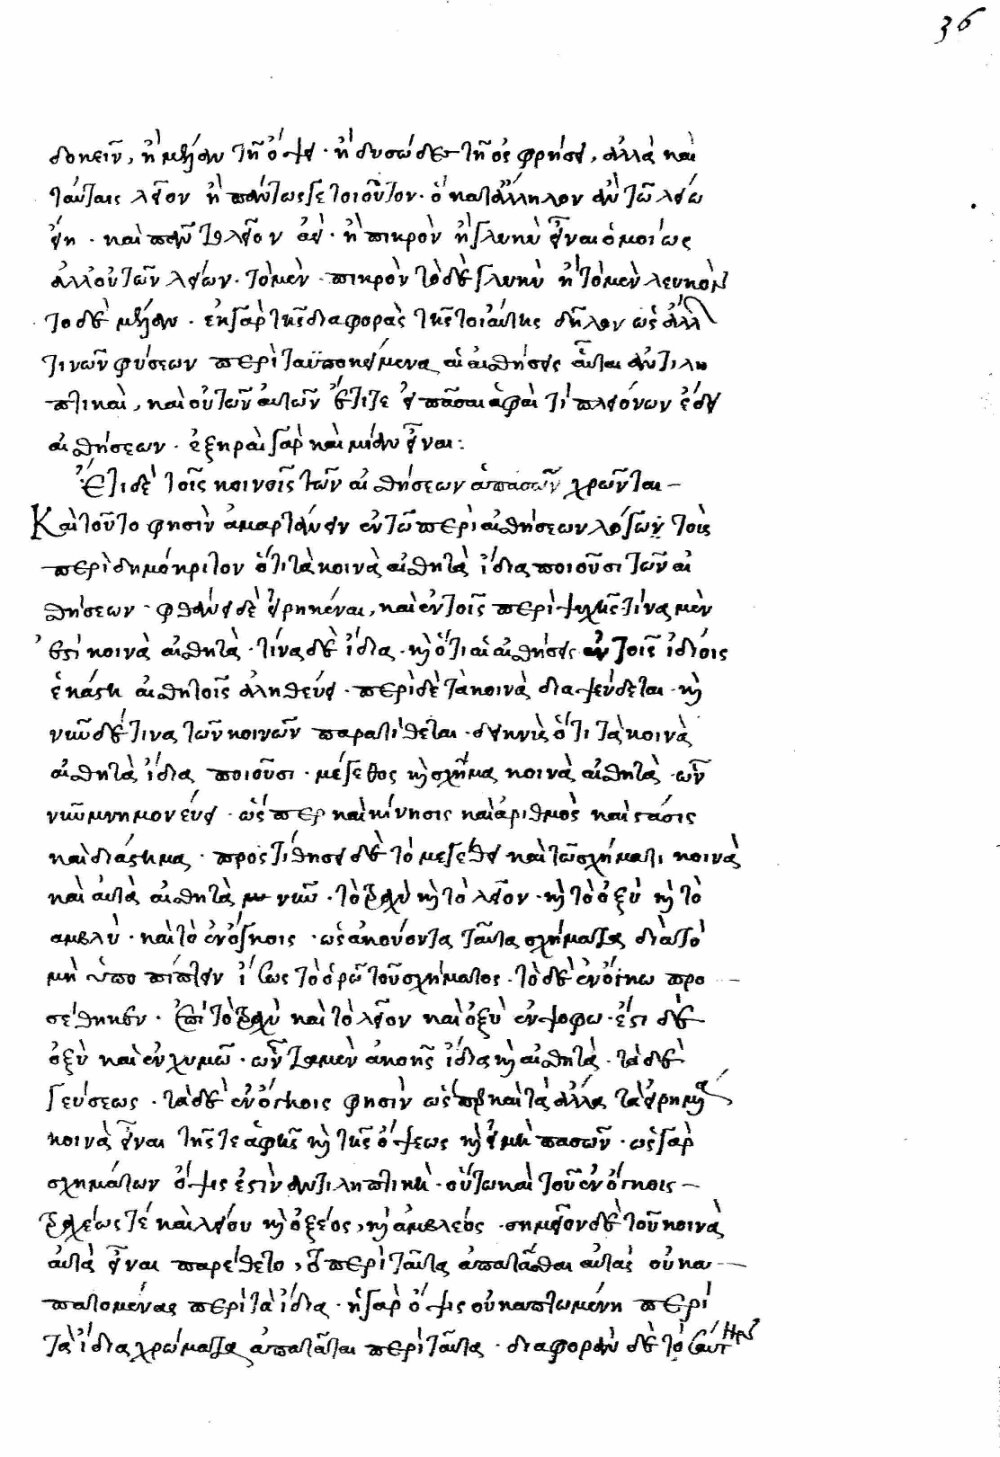 36
δοκεῖν, ἢ μέλαν τῇ ὄψει · ἢ δυσῶδες τῇ ὀσφρήσει, ἀλλὰ καὶ
ταύταις λεῖον ἢ πάντως γε τοιοῦτον · ὁ κατάλληλον ἂν τῷ λείῳ
εἴη · καὶ πᾶν τὸ λεῖον ἀεὶ · ἢ πικρὸν ἢ γλυκὺ εἶναι ὁμοίως
ἀλλ' οὐ τῶν λείων · τὸ μὲν · πικρὸν τὸ δὲ γλυκὺ ἢ τὸ μὲν λευκὸν
τὸ δὲ μέλαν · ἐκ γὰρ τῆς διαφορᾶς τῆς τοιαύτης δῆλον ὡς ἄλλ
τινῶν φύσεων περὶ τὰ ὑποκείμενα αἱ αἰσθήσεις αὗται ἀντιλη
πτικαὶ, καὶ οὐ τῶν αὐτῶν ἔτι τε εἰ πᾶσαι ἁφαὶ τί πλειόνων ἔδει
αἰσθήσεων · ἐξήρκει γὰρ καὶ μίαν εἶναι:
Ἔτι δὲ τοῖς κοινοῖς τῶν αἰσθήσεων ἁπασῶν χρῶνται
Καὶ τοῦτο φησὶν ἁμαρτάνειν ἐν τῷ περὶ αἰσθήσεων λόγων τοὺς
περὶ δημόκριτον ὅτι τὰ κοινὰ αἰσθητὰ ἴδια ποιοῦσι τῶν αἰ
σθήσεων · φθάνει δὲ εἰρηκέναι, καὶ ἐν τοῖς περὶ ψυχῆς τίνα μὲν
ἐστὶ κοινὰ αἰσθητὰ · τίνα δὲ ἴδια · καὶ ὅτι αἱ αἰσθήσεις ἐν τοῖς ἰδίοις
ἑκάστη αἰσθητοῖς ἀληθεύει · περὶ δὲ τὰ κοινὰ διαψεύδεται · καὶ
νῦν δέ τινα τῶν κοινῶν παρατίθεται · δεικνὺς ὅτι τὰ κοινὰ
αἰσθητὰ ἴδια ποιοῦσι · μέγεθος καὶ σχῆμα κοινὰ αἰσθητὰ · ὧν
νῦν μνημονεύει · ὥσπερ καὶ κίνησις καὶ ἀριθμὸς καὶ στάσις
καὶ διάστημα · προστίθησι δὲ τὸ μεγέθει καὶ τῷ σχήματι κοινὰ
καὶ αὐτὰ αἰσθητὰ νῦν · τὸ τραχὺ καὶ τὸ λεῖον · καὶ τὸ ὀξὺ καὶ τὸ
ἀμβλὺ · καὶ τὸ ἐν ὄγκοις · ὡς ἀκούοντα ταῦτα σχήματα διὰ τὸ
μὴ ὑποπίπτειν ἴσως τὸ ὁρῶ τοῦ σχήματος · τὸ δὲ ἐν ὄγκω προ
σέθηκεν · ἐπεὶ τὸ τραχὺ καὶ τὸ λεῖον καὶ ὀξὺ ἐν ψόφω · ἔστι δὲ
ὀξὺ καὶ ἐν χυμῶ · ὧν τὰ μὲν ἀκοῆς ἴδια καὶ αἰσθητὰ · τὰ δὲ
γεύσεως · τὰ δὲ ἐν ὄγκοις φησὶν ὥσπερ καὶ τὰ ἄλλα τὰ εἰρημένα
κοινὰ εἶναι τῆς τε ἁφῆς καὶ τῆς ὄψεως καὶ εἰ μὴ πασῶν · ὡς γὰρ
σχημάτων ὄψις ἐστὶν ἀντιληπτικὴ · οὕτω καὶ τοῦ ἐν ὄγκοις
τραχέως τέ καὶ λείου καὶ ὀξέος, καὶ ἀμβλέος · σημεῖον δὲ τοῦ κοινὰ
αὐτὰ εἶναι παρέθετο, ὃ περὶ ταῦτα ἀπατᾶσθαι αὐτὰς οὐκ ἀ
πατομένας περὶ τὰ ἴδια · ἡ γὰρ ὄψις οὐκ ἀπατωμένη περὶ
τὰ ἴδια χρώματα ἀπατᾶται περὶ ταῦτα · διαφορὰν δὲ τὸ